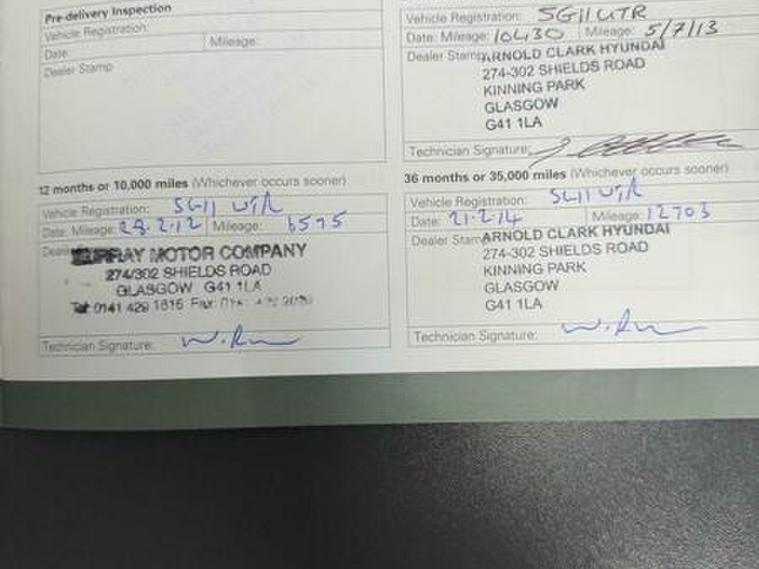 Pre-delivery Inspection
Vehicle Registration:
Date: Mileage:
Dealer Stamp
Vehicle Registration: SG11 UTR
Date: Mileage: 10430 Mileage: 5/7/13
Dealer Stamp ARNOLD CLARK HYUNDAI
274-302 SHIELDS ROAD
KINNING PARK
GLASGOW
G41 1LA
Technician Signature:
12 months or 10,000 miles (Whichever occurs sooner)
Vehicle Registration: SG11 UTR
Date: Mileage: 28.2.12 Mileage: 6595
MURRAY MOTOR COMPANY
274/302 SHIELDS ROAD
GLASGOW G41 1LA
Tel: 0141 429 1616 Fax:
Technician Signature:
36 months or 35,000 miles (Whichever occurs sooner)
Vehicle Registration: SG11 UTR
Date: 21.2.14 Mileage: 12703
Dealer Stamp ARNOLD CLARK HYUNDAI
274-302 SHIELDS ROAD
KINNING PARK
GLASGOW
G41 1LA
Technician Signature: